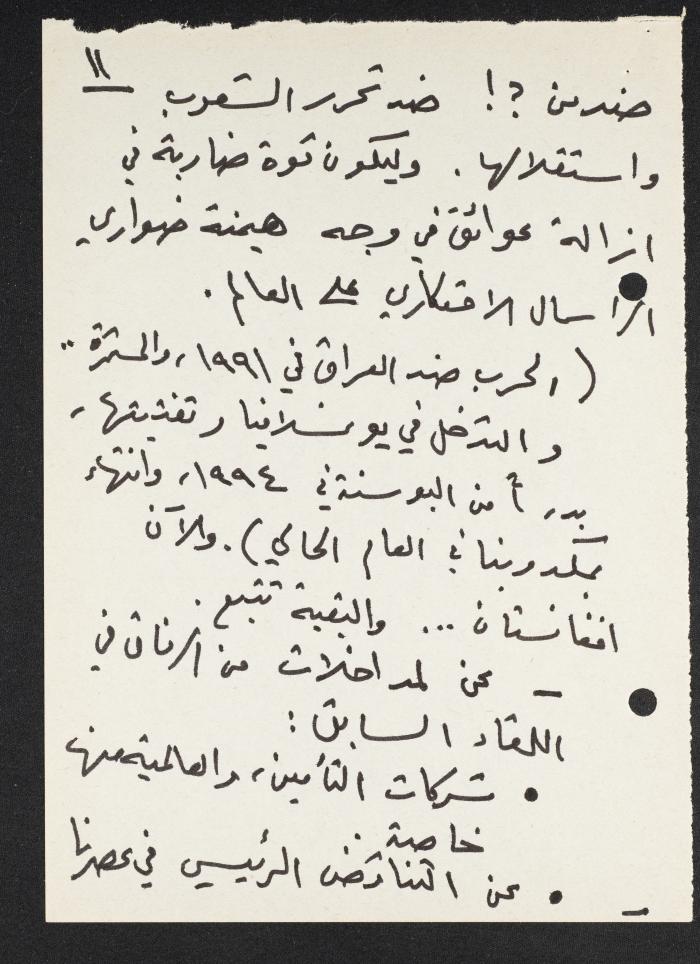 ١١
ضد من ؟! ضد تحرر الشعوب
واستقلالها . وليكون قوة ضاربة في
ازالة عوائق في وجه هيمنة ضواري
الرأسمال الاحتكاري على العالم .
( الحرب ضد العراق في ١٩٩١، والمستمرة ..
و التدخل في يوغسلافيا و تفتيتها ،
بدءاً من البوسنة في ١٩٩٤، وانتهاء
بمكدونيا في العام الحالي ) . والآن
افغانستان ... والبقية تتبع .
– عن المداخلات من الرفاق في
اللقاء السابق :
• شركات التأمين، والعالمية منها
خاصة .
– • عن التناقض الرئيسي في عصرنا